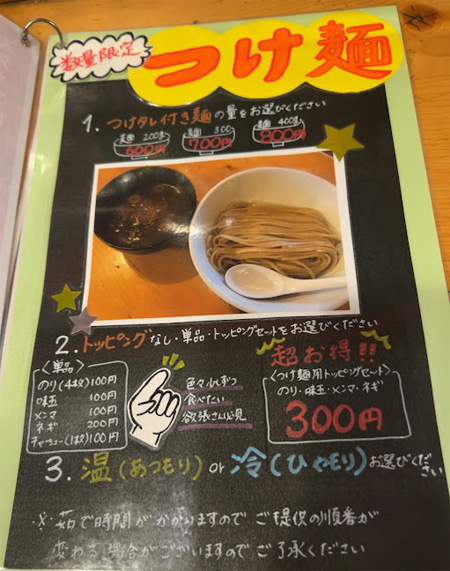 数量限定
つけ麺
1. つけタレ付き麺の量をお選びください
麺 200g 麺 300 麺 400g
600円 700円 800円
2. トッピングなし・単品・トッピングセットをお選びください
〈単品〉
のり(4枚)100円
味玉 100円
メンマ 100円
ネギ 200円
チャーシュー(1枚)100円
色々少しずつ
食べたい
欲張さん必見
超お得!!
〈つけ麺用トッピングセット〉
のり・味玉・メンマ・ネギ
300円
3. 温(あつもり) or 冷(ひやもり)お選びください
※茹で時間がかかりますのでご提供の順番が
変わる場合がございますのでご了承ください